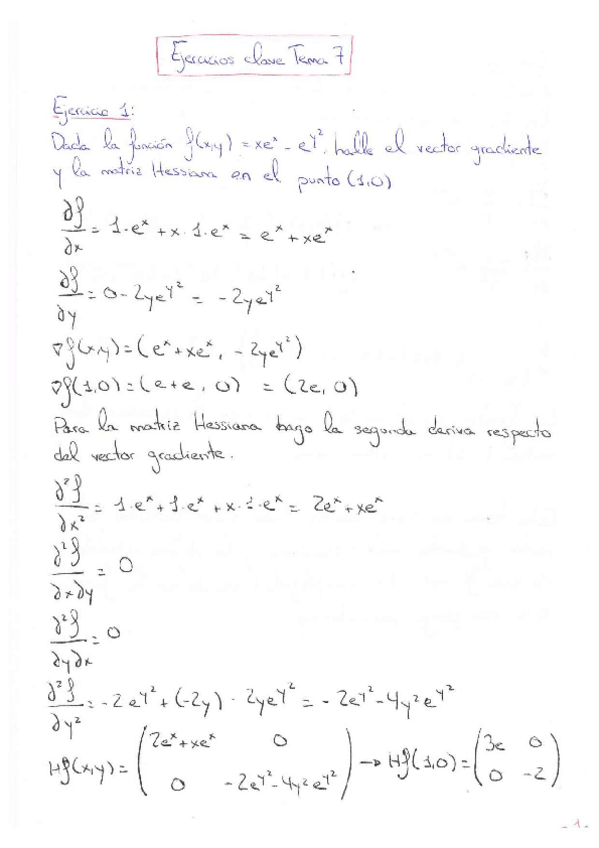 Ejercicios clave Tema 7
Ejercicio 1:
Dada la función f(x,y) = xeˣ - e^y², halle el vector gradiente
y la matriz Hessiana en el punto (1,0)
∂f/∂x = 1·eˣ + x·1·eˣ = eˣ + xeˣ
∂f/∂y = 0 - 2ye^y² = - 2ye^y²
∇f(x,y) = (eˣ + xeˣ, - 2ye^y²)
∇f(1,0) = (e+e, 0) = (2e, 0)
Para la matriz Hessiana hago la segunda deriva respecto
del vector gradiente.
∂²f/∂x² = 1·eˣ + 1·eˣ + x·1·eˣ = 2eˣ + xeˣ
∂²f/∂x∂y = 0
∂²f/∂y∂x = 0
∂²f/∂y² = - 2e^y² + (-2y) · 2ye^y² = - 2e^y² - 4y²e^y²
Hf(x,y) = (2eˣ + xeˣ 0 / 0 -2e^y² - 4y²e^y²) → Hf(1,0) = (3e 0 / 0 -2)
- 1 -